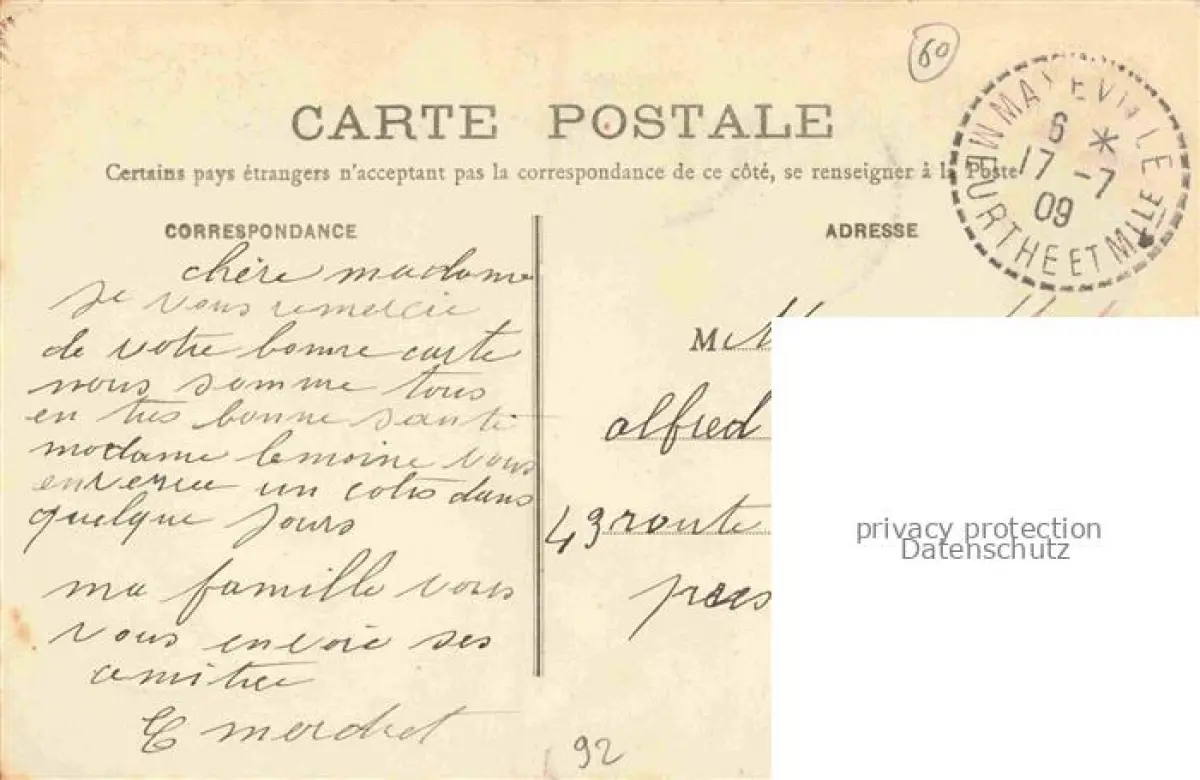 60
CARTE POSTALE
Certains pays étrangers n'acceptent pas la correspondance de ce côté, se renseigner à la Poste
MAXEVILLE
6 *
17 -7
09
MEURTHE ET MLLE
CORRESPONDANCE
chère madame
je vous remercie
de votre bonne carte
nous somme tous
en tres bonne santé
madame lemoine vous
un colis dans
quelque jours
ma famille vous
vous envoie ses
amitiee
ADRESSE
M
alfred
43 route
pres
92
privacy protection
Datenschutz